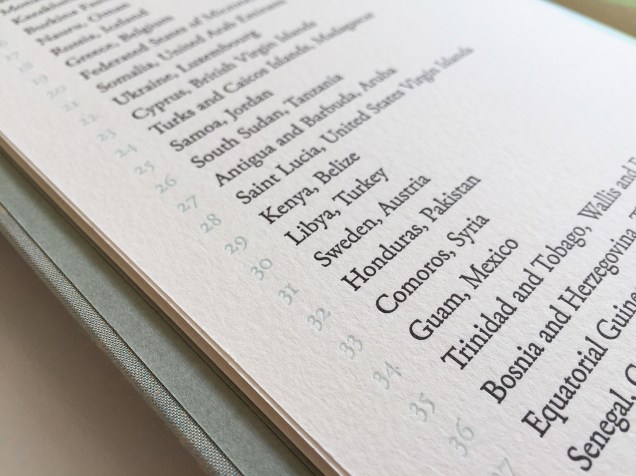 Burkina
17 Nauru, Oman
18 Russia, Iceland
19 Greece, Belgium
20 Federated States of
21 Somalia, United Arab Emirates
22 Ukraine, Luxembourg
23 Cyprus, British Virgin Islands
24 Turks and Caicos Islands, Madagascar
25 Samoa, Jordan
26 South Sudan, Tanzania
27 Antigua and Barbuda, Aruba
28 Saint Lucia, United States Virgin Islands
29 Kenya, Belize
30 Libya, Turkey
31 Sweden, Austria
32 Honduras, Pakistan
33 Comoros, Syria
34 Guam, Mexico
35 Trinidad and Tobago, Wallis and
36 Bosnia and Herzegovina,
37 Equatorial Guine
Senegal,